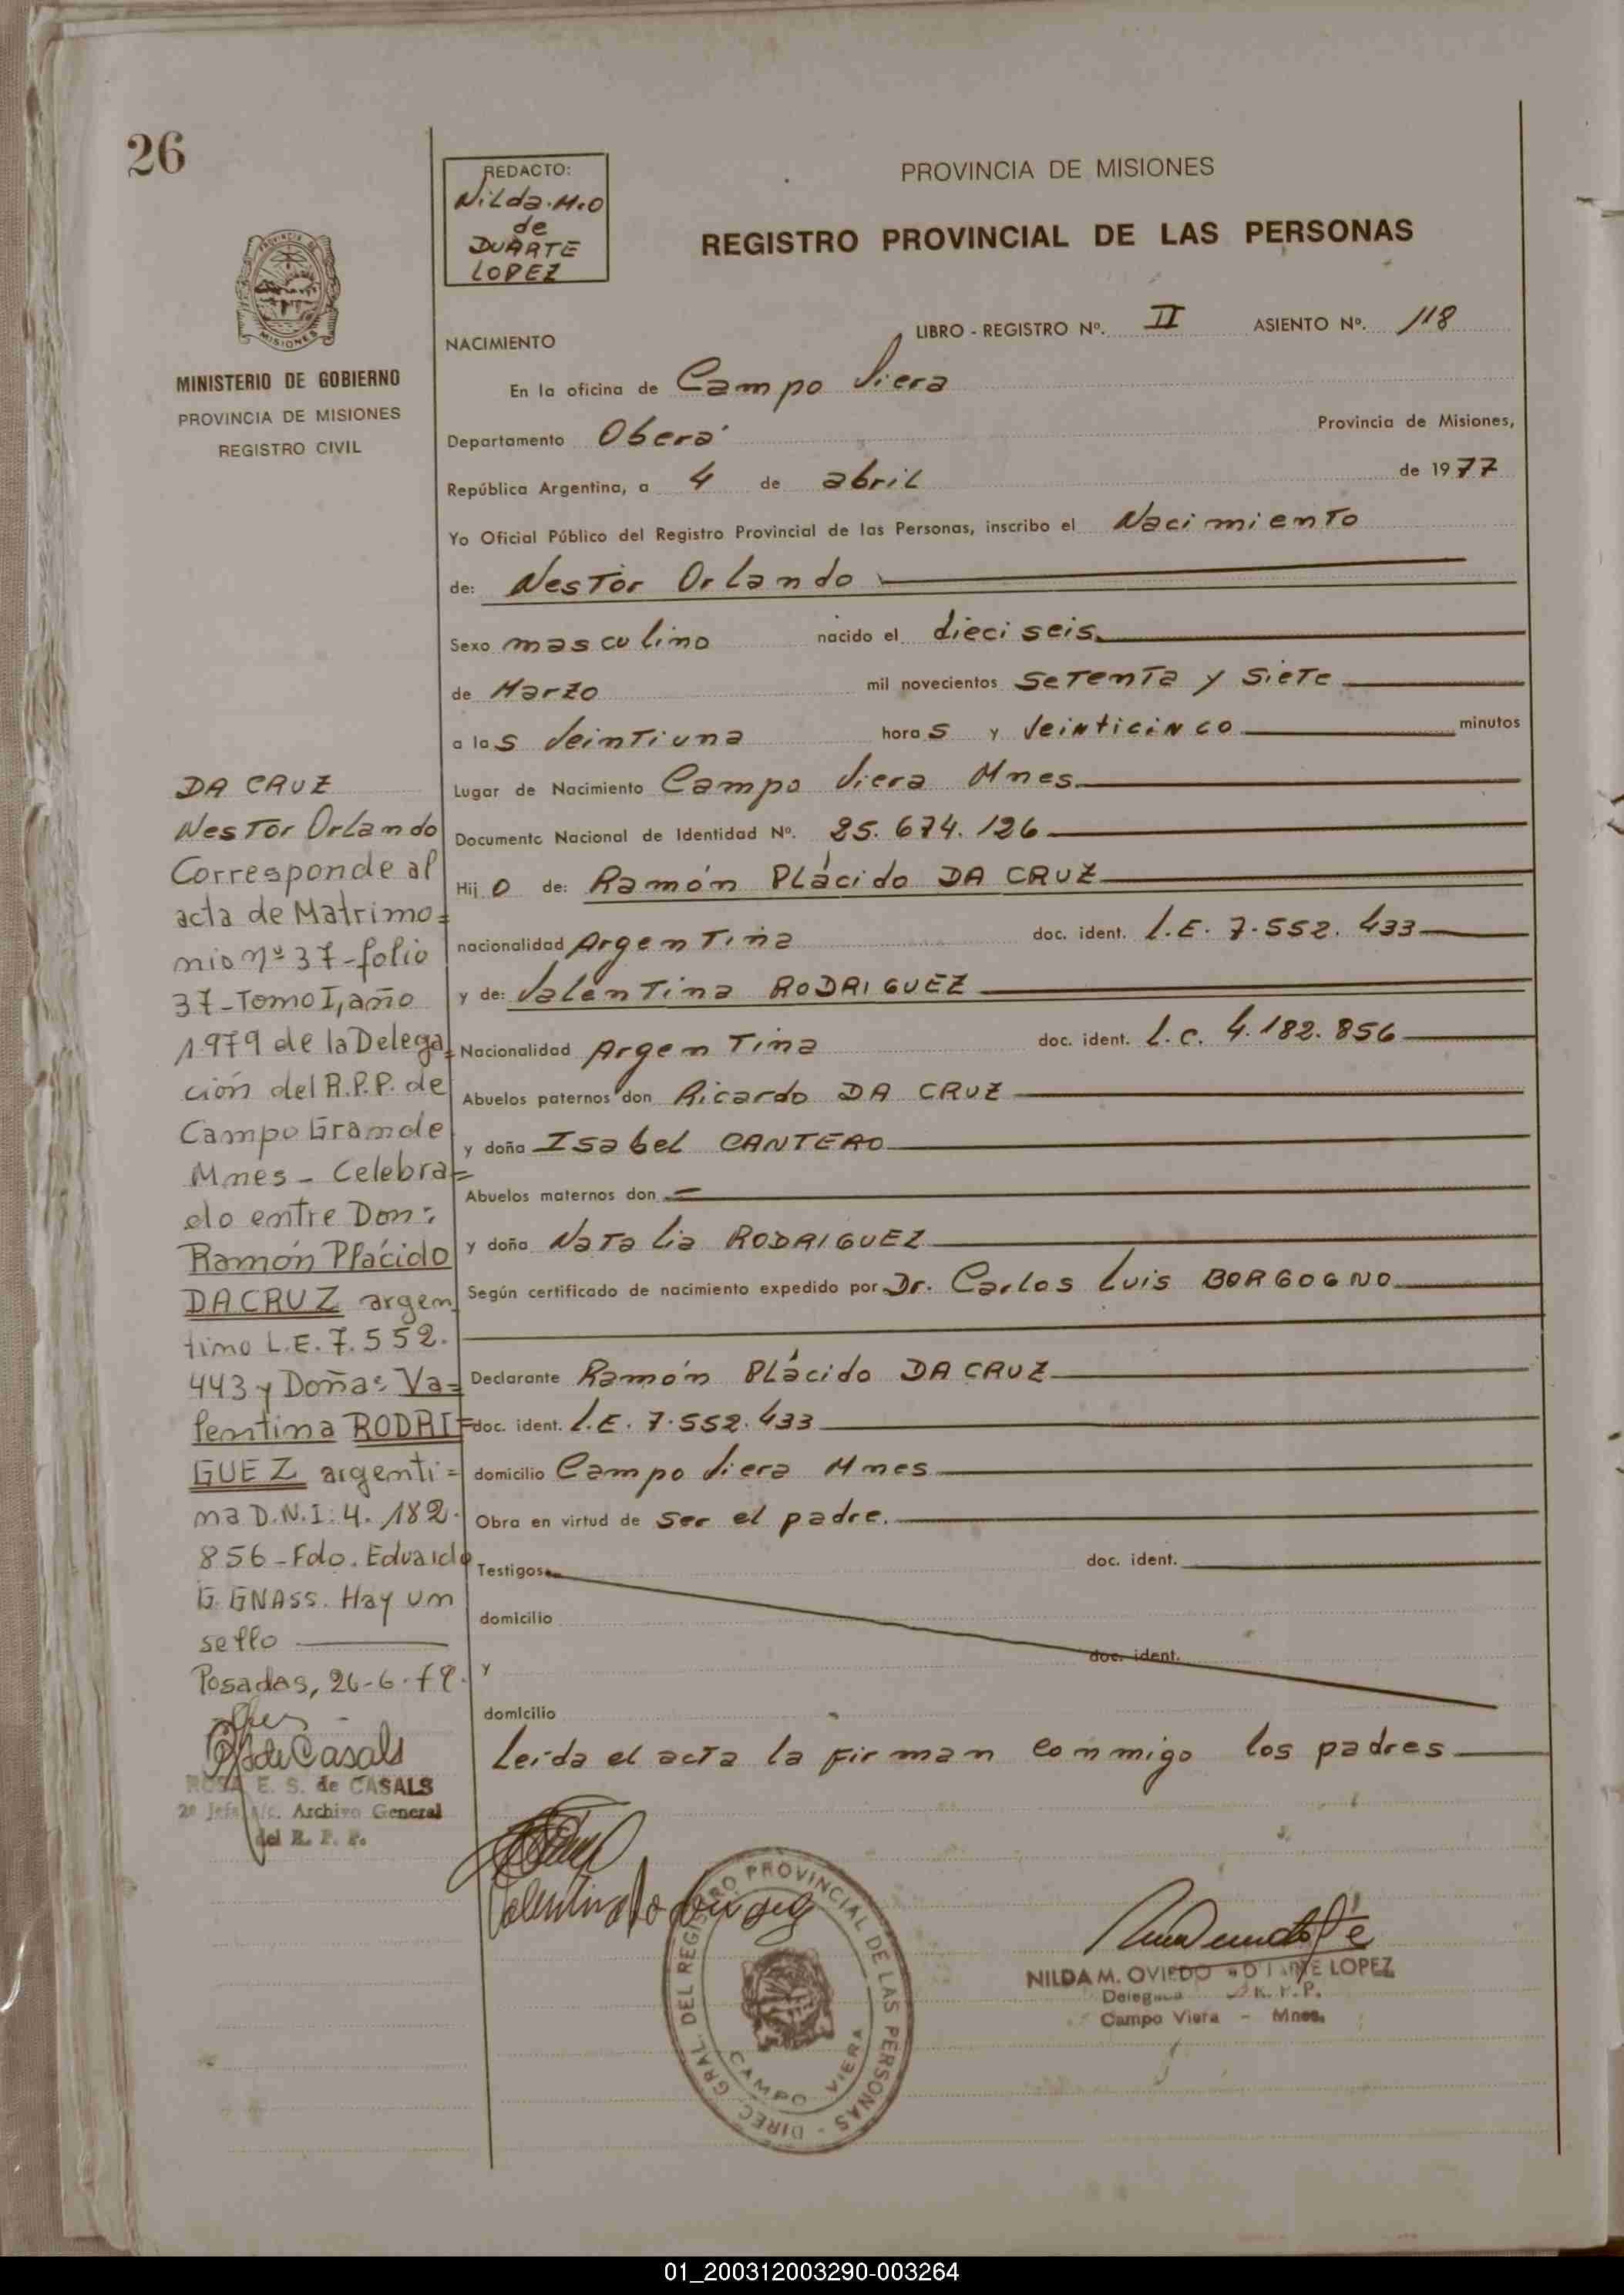 26
REDACTO:
Nilda.M.O
de
DUARTE
LOPEZ
PROVINCIA DE MISIONES
REGISTRO PROVINCIAL DE LAS PERSONAS
PROVINCIA DE
MISIONES
MINISTERIO DE GOBIERNO
PROVINCIA DE MISIONES
REGISTRO CIVIL
LIBRO - REGISTRO Nº. II ASIENTO Nº. 118
NACIMIENTO
En la oficina de Campo Viera
Departamento Oberá Provincia de Misiones,
República Argentina, a 4 de abril de 1977
Yo Oficial Público del Registro Provincial de las Personas, inscribo el Nacimiento
de: Nestor Orlando
Sexo masculino nacido el dieciseis
de Marzo mil novecientos setenta y siete
a las veintiuna horas y veinticinco minutos
Lugar de Nacimiento Campo Viera Mnes.
Documento Nacional de Identidad Nº. 25.674.126
Hijo de: Ramón Plácido DA CRUZ
nacionalidad Argentina doc. ident. L.E. 7.552.433
y de: Valentina RODRIGUEZ
Nacionalidad Argentina doc. ident. L.C. 4.182.856
Abuelos paternos don Ricardo DA CRUZ
y doña Isabel CANTERO
Abuelos maternos don =
y doña Natalia RODRIGUEZ
Según certificado de nacimiento expedido por Dr. Carlos Luis BORGOGNO
Declarante Ramón Plácido DA CRUZ
doc. ident. L.E. 7.552.433
domicilio Campo Viera Mnes
Obra en virtud de ser el padre.
Testigos doc. ident.
domicilio
y doc. ident.
domicilio
Leida el acta la firman conmigo los padres
DA CRUZ
Nestor Orlando
Corresponde al
acta de Matrimo=
nio nº 37-folio
37-Tomo I, año
1.979 de la Delega=
ción del R.P.P. de
Campo Grande
Mnes - Celebra=
do entre Don:
Ramón Plácido
DA CRUZ argen
tino L.E. 7.552.
443 y Doña: Va=
lentina RODRI=
GUEZ argenti=
na D.N.I: 4.182.
856-Fdo. Eduardo
G. GNASS. Hay un
sello
Posadas, 26-6-79.
de Casals
ROSA E. S. de CASALS
2º Jefe a/c. Archivo General
del R. P. P.
Valentina Rodriguez
DIREC. GRAL. DEL REGISTRO PROVINCIAL DE LAS PERSONAS -
CAMPO VIERA
NILDA M. OVIEDO DUARTE LOPEZ
R.P.P.
Campo Viera - Mnes.
01_200312003290-003264